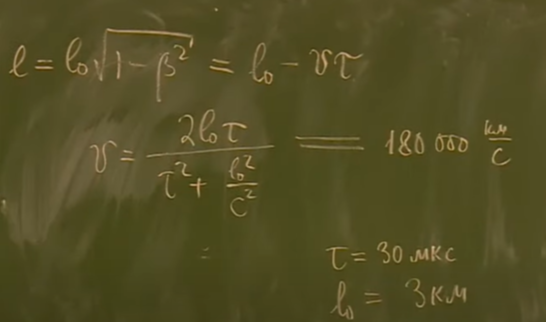 l = l₀√(1-β²) = l₀ - vτ
v = 2l₀τ / (τ² + l₀²/c²) = 180 000 км/с
τ = 30 мкс
l₀ = 3 км